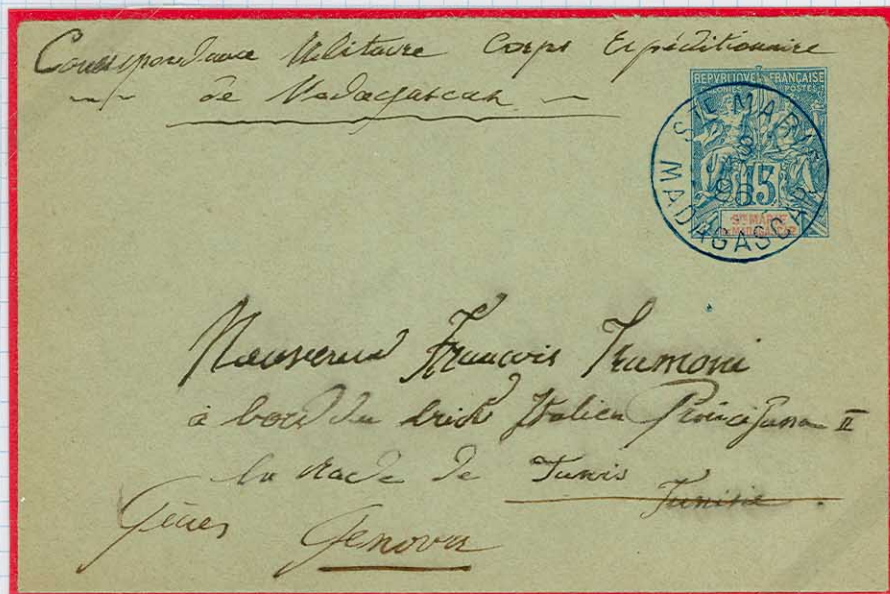 Correspondance Militaire Corps Expéditionnaire
de Madagascar
REPVBLIQVE FRANÇAISE
COLONIES POSTES
STE MARIE
8
JANV
96
MADAGASCAR
15
STE MARIE
DE MADAGASCAR
Monsieur François Tramoni
à bord du brick Italien II
La rade de Tunis
Tunisie
Gênes Genova